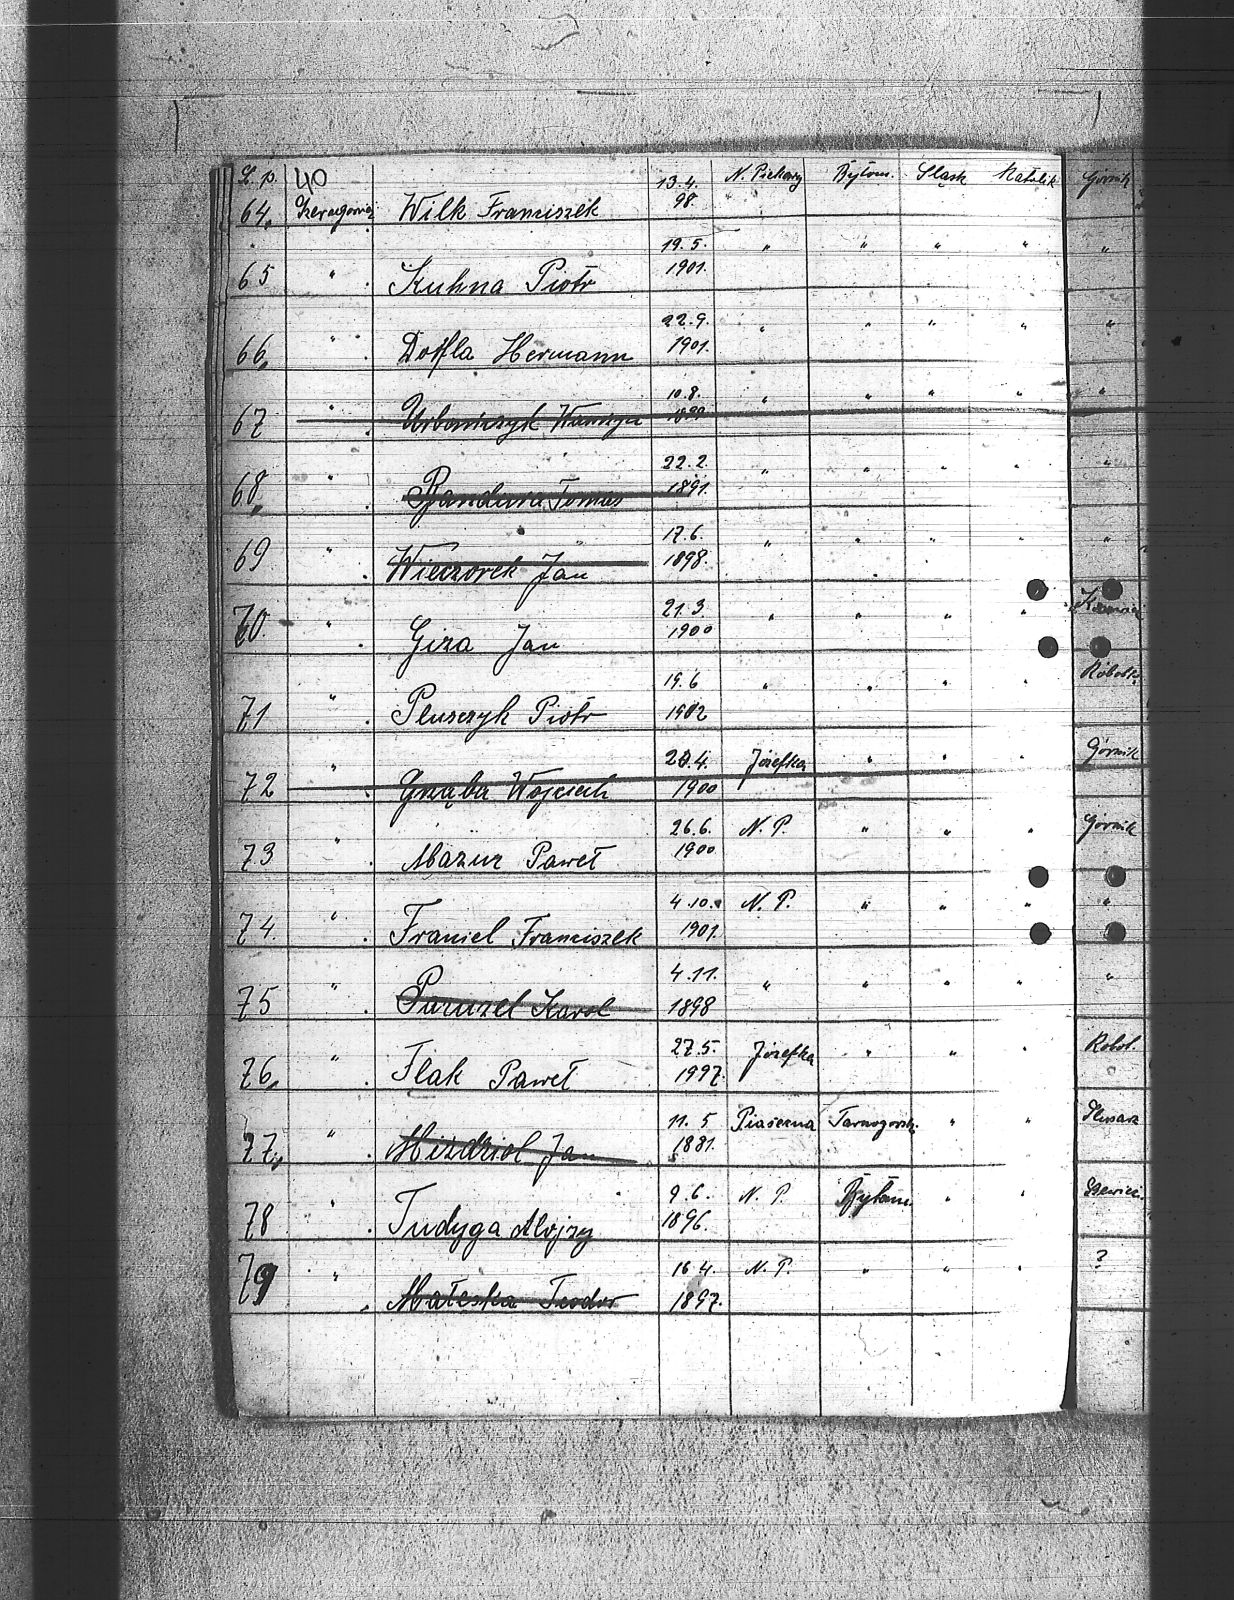 L. p. 40 13.4. N. Piekary Bytom. Śląsk Katolik Górnik
64. Szeregowiec Wilk Franciszek 98.
19.5. " " " " "
65 " Kuhna Piotr 1901.
22.9. " " " " "
66. " Hermann 1901.
10.8. " " " " "
67 "
22.2. " " " " "
68. " Bandura Tomas 1891.
17.6. " " " " "
69 " Wieczorek Jan 1898.
21.3. " " " "
70 " Giza Jan 1900
19.6 " " " " Robotn.
71 " Pluszczyk Piotr 1902
4. Józefka " " " Górnik
72 " Grząba Wojciech 1900
26.6. N. P. " " " Górnik
73 " Mazur Paweł 1900
4.10. N. P. " " " "
74. " Franiel Franciszek 1901.
4.11. " " " " "
75 " Karol 1898
27.5. Józefka " " " Robot.
76. " Flak Paweł 1997.
11.5 Piaseczna Tarnogorski. " " Ślusarz
77. " Jan 1881.
9.6. N. P. Bytom. " " Szewiec.
78 " Tudyga Alojzy 1896.
16 4. N. P. " " " ?
79 " Małeska Teodor 1897.